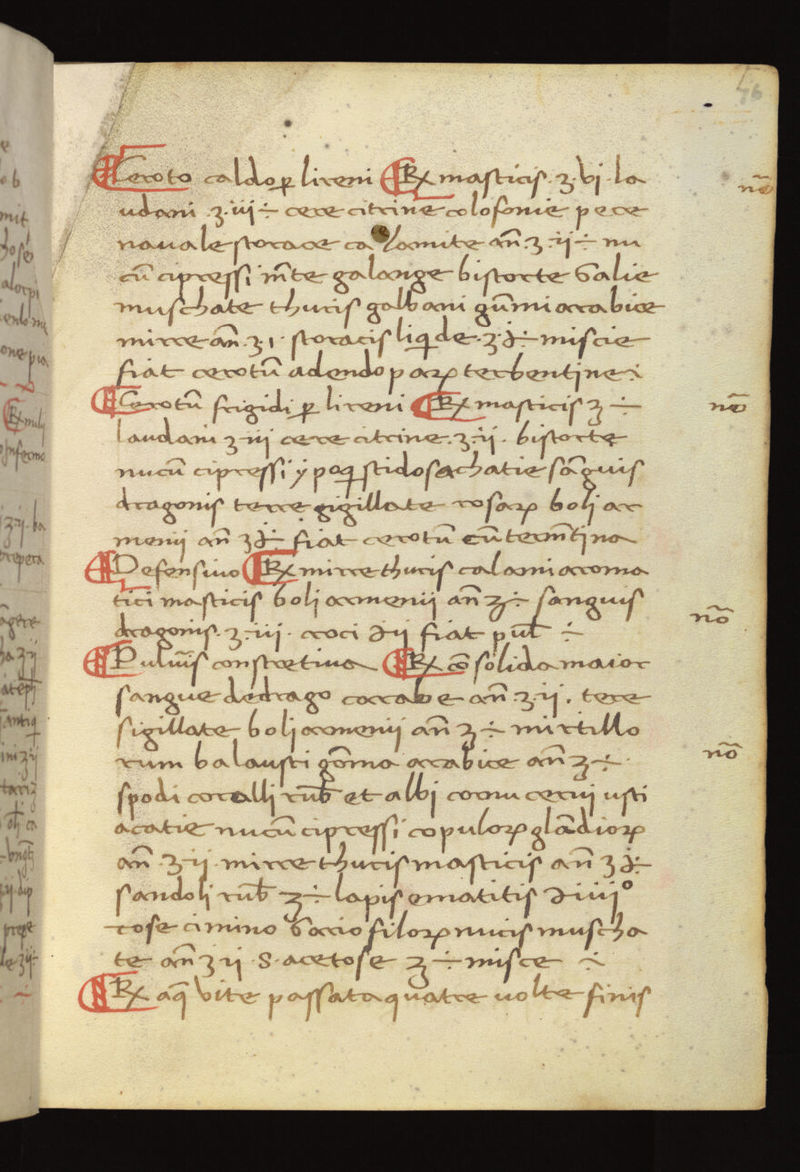 46
Ceroto caldo ꝑ li reni ℞ masticis · ʒ · vi · la
udani · ʒ · iii ÷ cere citrine colofonie pece
navale storace calamite an̄ · ʒ · ii ÷ nu
cū cipressi m̄te galange bistorte Galie
muschate thuris galbani gūmi arabice
mirre an̄ · ʒ · 1 · storacis liq̄ide · ʒ · ÷ miscie
fiat cerotū adendo parꝝ terbentine
Cerotū frigidi ꝑ li reni ℞ masticis ʒ ÷
laudani ʒ iii cere citrine · ʒ · ii · bistorte
nucū cipressi ypoq̄stidos achatie sāguis
dragonis terre gigillate rosarꝝ boli ar
menii an̄ ʒ ÷ fiat cerotū cū term̄tina
Defensivo ℞ mirre thuris calami aroma
tici masticis boli armenii an̄ ʒ ÷ sanguis
dragonis · ʒ · iii · croci ii fiat pul̄ ÷
Pulvis constretiva ℞ cōsolida maior
sangue de drago carrabe an̄ · ʒ · ii · tere
sigillate boli armenii an̄ ʒ ÷ mirtillo
rum balausti gōma arabice an̄ ʒ ÷
spodi coralli rub̄ et albi cornu cervi usti
acatie nucū cipressi copulorꝝ glādiorꝝ
an̄ ʒ · ii · mirre thuris masticis an̄ ʒ ÷
sandoli rub̄ ʒ ÷ lapis ematitis iiii°
rose cimino filorꝝ nucis muscha
te an̄ ʒ ii · S · acetose ʒ ÷ misce ÷
℞ aq̄ vite passata quatre volte finis
nō
nō
nō
nō